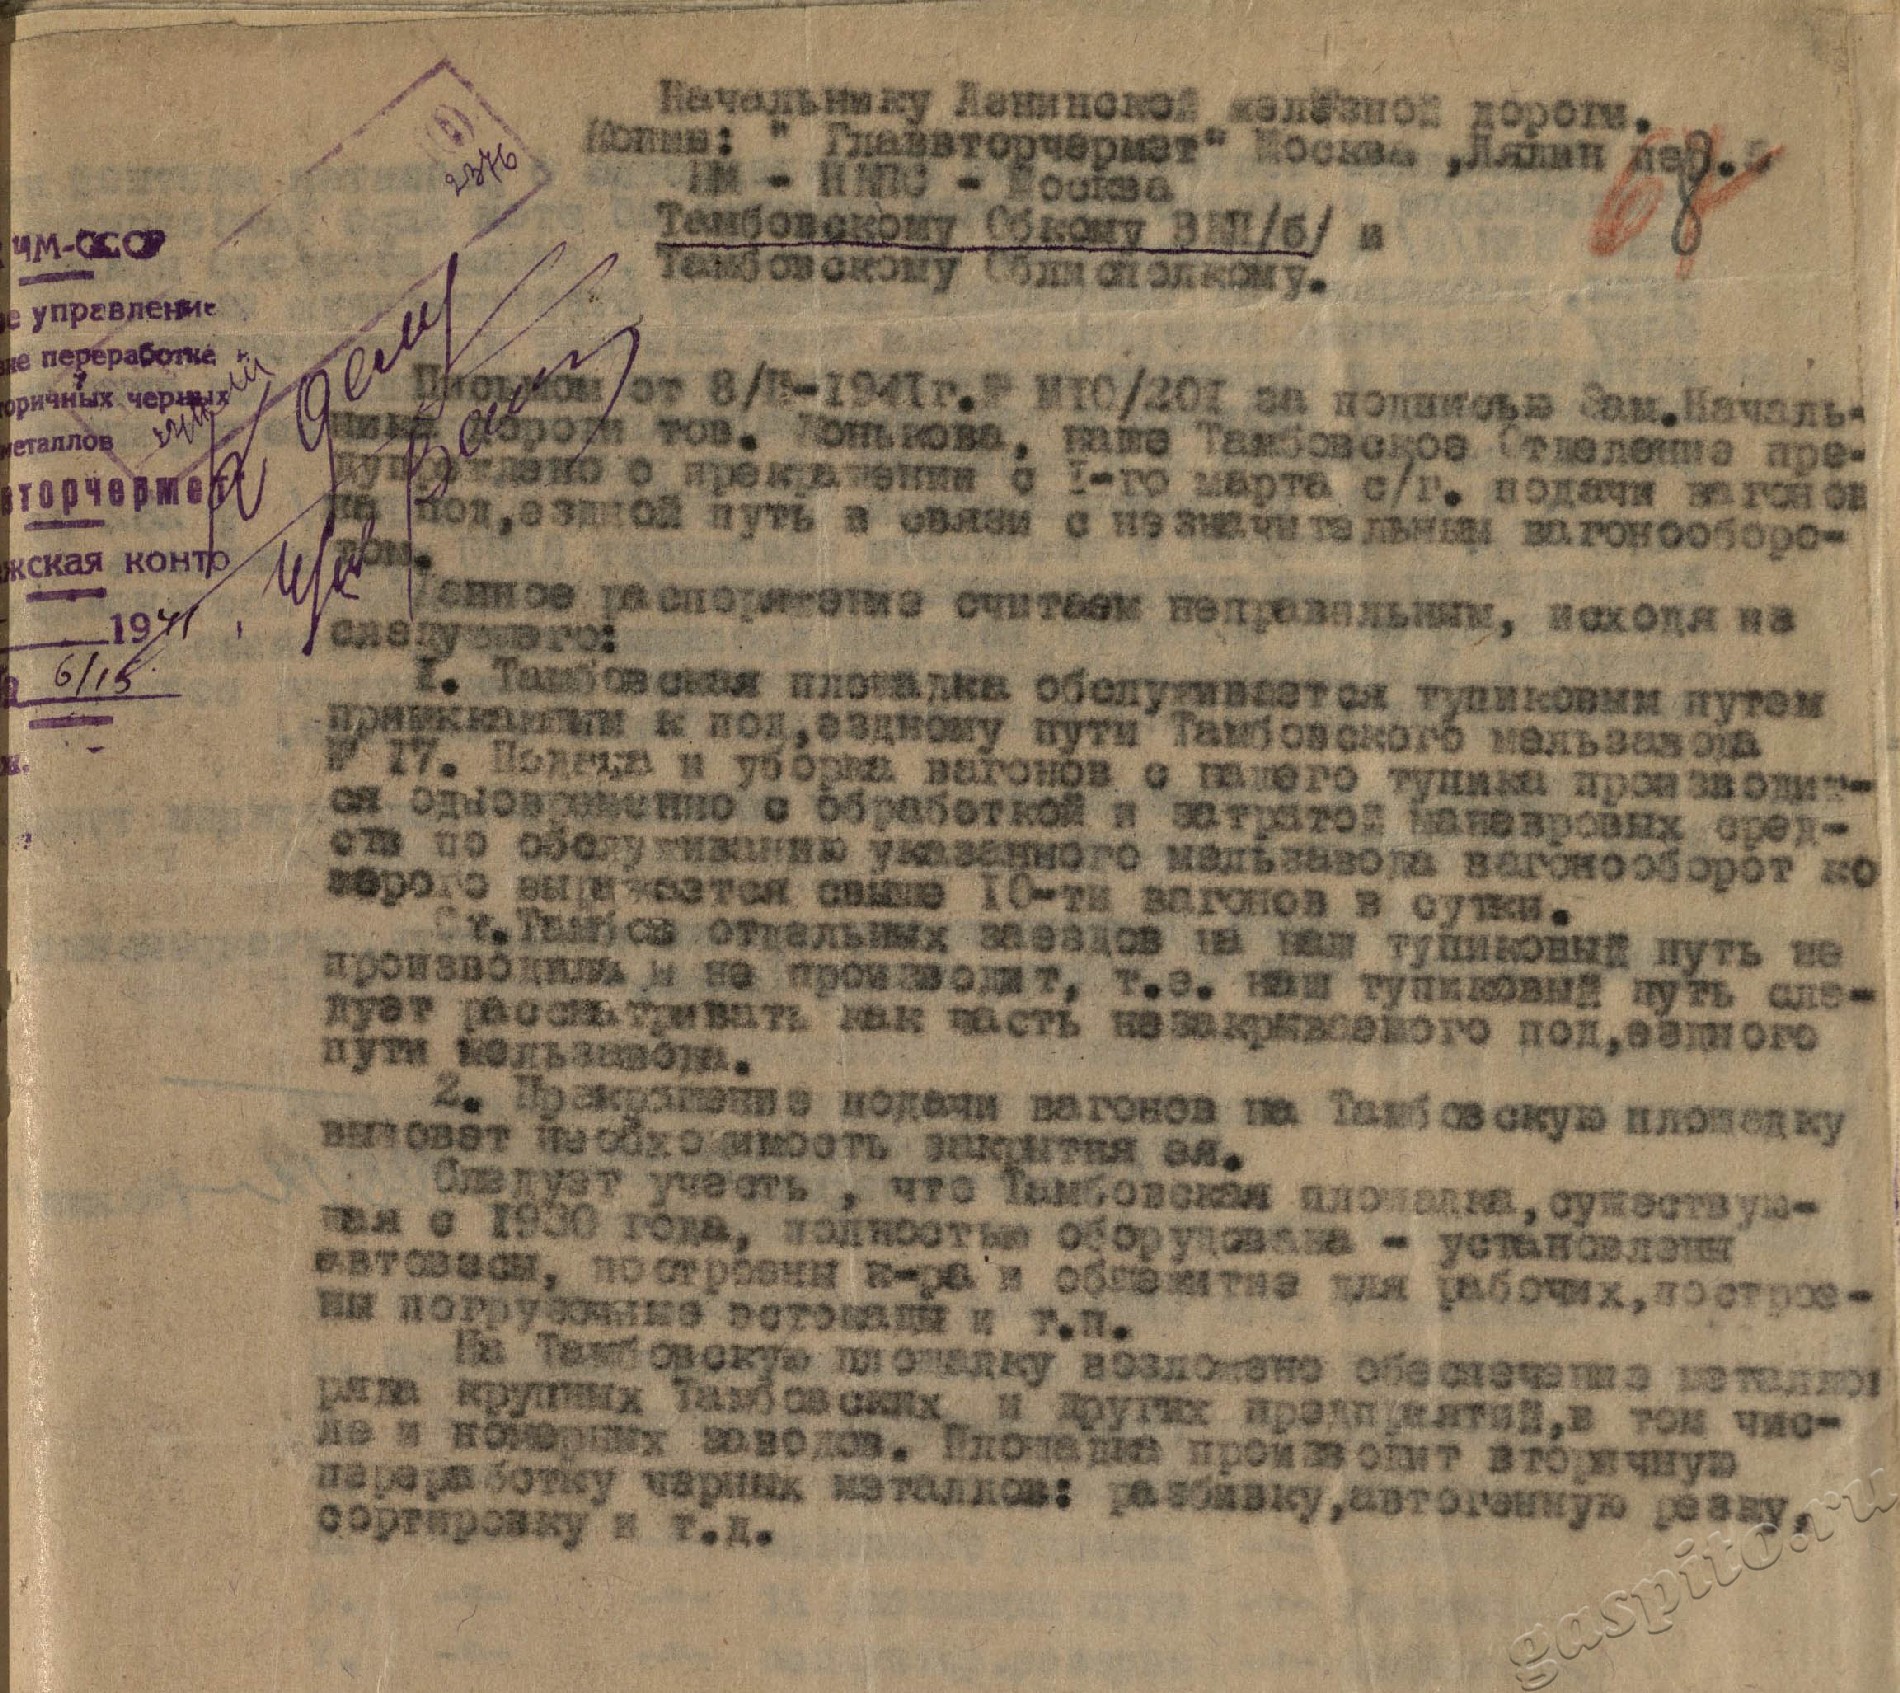 Начальнику Ленинской железной дороги.
Копия: " Главвторчермет" Москва ,Лялин пер.5
НМ - НКПС - Москва
Тамбовскому Обкому ВКП/б/ и
Тамбовскому Облисполкому.
68
2376
ЧМ-СССР
ое управление
переработке
торичных черных
металлов
вторчермет
жская конто
1941
6/15
Письмом от 8/П-1941г.№ МТО/201 за подписью Зам.Началь-
ника дороги тов. Конькова, наше Тамбовское Отделение пре-
дупреждено о прекращении с 1-го марта с/г. подачи вагонов
на под,ездной путь в связи с незначительным вагонооборо-
том.
Данное распоряжение считаем неправильным, исходя из
следующего:
1. Тамбовская площадка обслуживается тупиковым путем
примыкающим к под,ездному пути Тамбовского мельзавода
№ 17. Подача и уборка вагонов с нашего тупика производит-
ся одновременно с обработкой и затратой маневровых сред-
ств по обслуживанию указанного мельзавода вагонооборот ко
торого выражается свыше 10-ти вагонов в сутки.
Ст.Тамбов отдельных заездов на наш тупиковый путь не
производила и не производит, т.е. наш тупиковый путь сле-
дует рассматривать как часть незакрываемого под,ездного
пути мельзавода.
2. Прекращение подачи вагонов на Тамбовскую площадку
вызовет необходимость закрытия ея.
Следует учесть , что Тамбовская площадка,существую-
щая с 1930 года, полностью оборудована - установлены
автовесы, построены к-ра и общежитие для рабочих,построе-
ны погрузочные эстокады и т.п.
На Тамбовскую площадку возложено обеспечение металлом
ряда крупных Тамбовских и других предприятий,в том чис-
ле и номерных заводов. Площадка производит вторичную
переработку черных металлов: разбивку,автогенную резку,
сортировку и т.д.
gaspito.ru